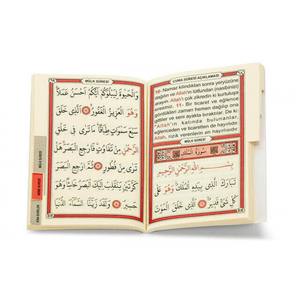 CUMA SÛRESİ AÇIKLAMASI
10- Namaz kılındıktan sonra yeryüzüne
dağılın ve Allah'ın lütfundan (nasibinizi)
arayın. Allah'ı çok zikredin ki kurtuluşa
eresiniz. 11- Bir ticaret ve eğlence
gördükleri zaman
gittiler ve seni ayakta bıraktılar. De ki:
Allah'ın katında bulunanlar,
eğlenceden ve ticaretten
Allah, rızık verenlerin en hayırlısıdır.
MÜLK SÛRESİ
سُورَةُ الْمُلْكِ
بِسْمِ اللّٰهِ الرَّحْمٰنِ الرَّحِيمِ
تَبَارَكَ الَّذِى بِيَدِهِ الْمُلْكُ وَهُوَ عَلٰى
كُلِّ شَىْءٍ قَدِيرٌ ۞ اَلَّذِى خَلَقَ الْمَوْتَ
MÜLK SÛRESİ
وَالْحَيٰوةَ لِيَبْلُوَكُمْ اَيُّكُمْ اَحْسَنُ عَمَلًا
وَهُوَ الْعَزِيزُ الْغَفُورُ ۞ اَلَّذِى خَلَقَ
سَبْعَ سَمٰوَاتٍ طِبَاقًا مَا تَرٰى فِى خَلْقِ
الرَّحْمٰنِ مِنْ تَفَاوُتٍ فَارْجِعِ الْبَصَرَ هَلْ
تَرٰى مِنْ فُطُورٍ ۞ ثُمَّ ارْجِعِ الْبَصَرَ
كَرَّتَيْنِ يَنْقَلِبْ اِلَيْكَ الْبَصَرُ خَاسِئًا وَهُوَ
حَسِيرٌ ۞ وَلَقَدْ زَيَّنَّا السَّمَاءَ الدُّنْيَا